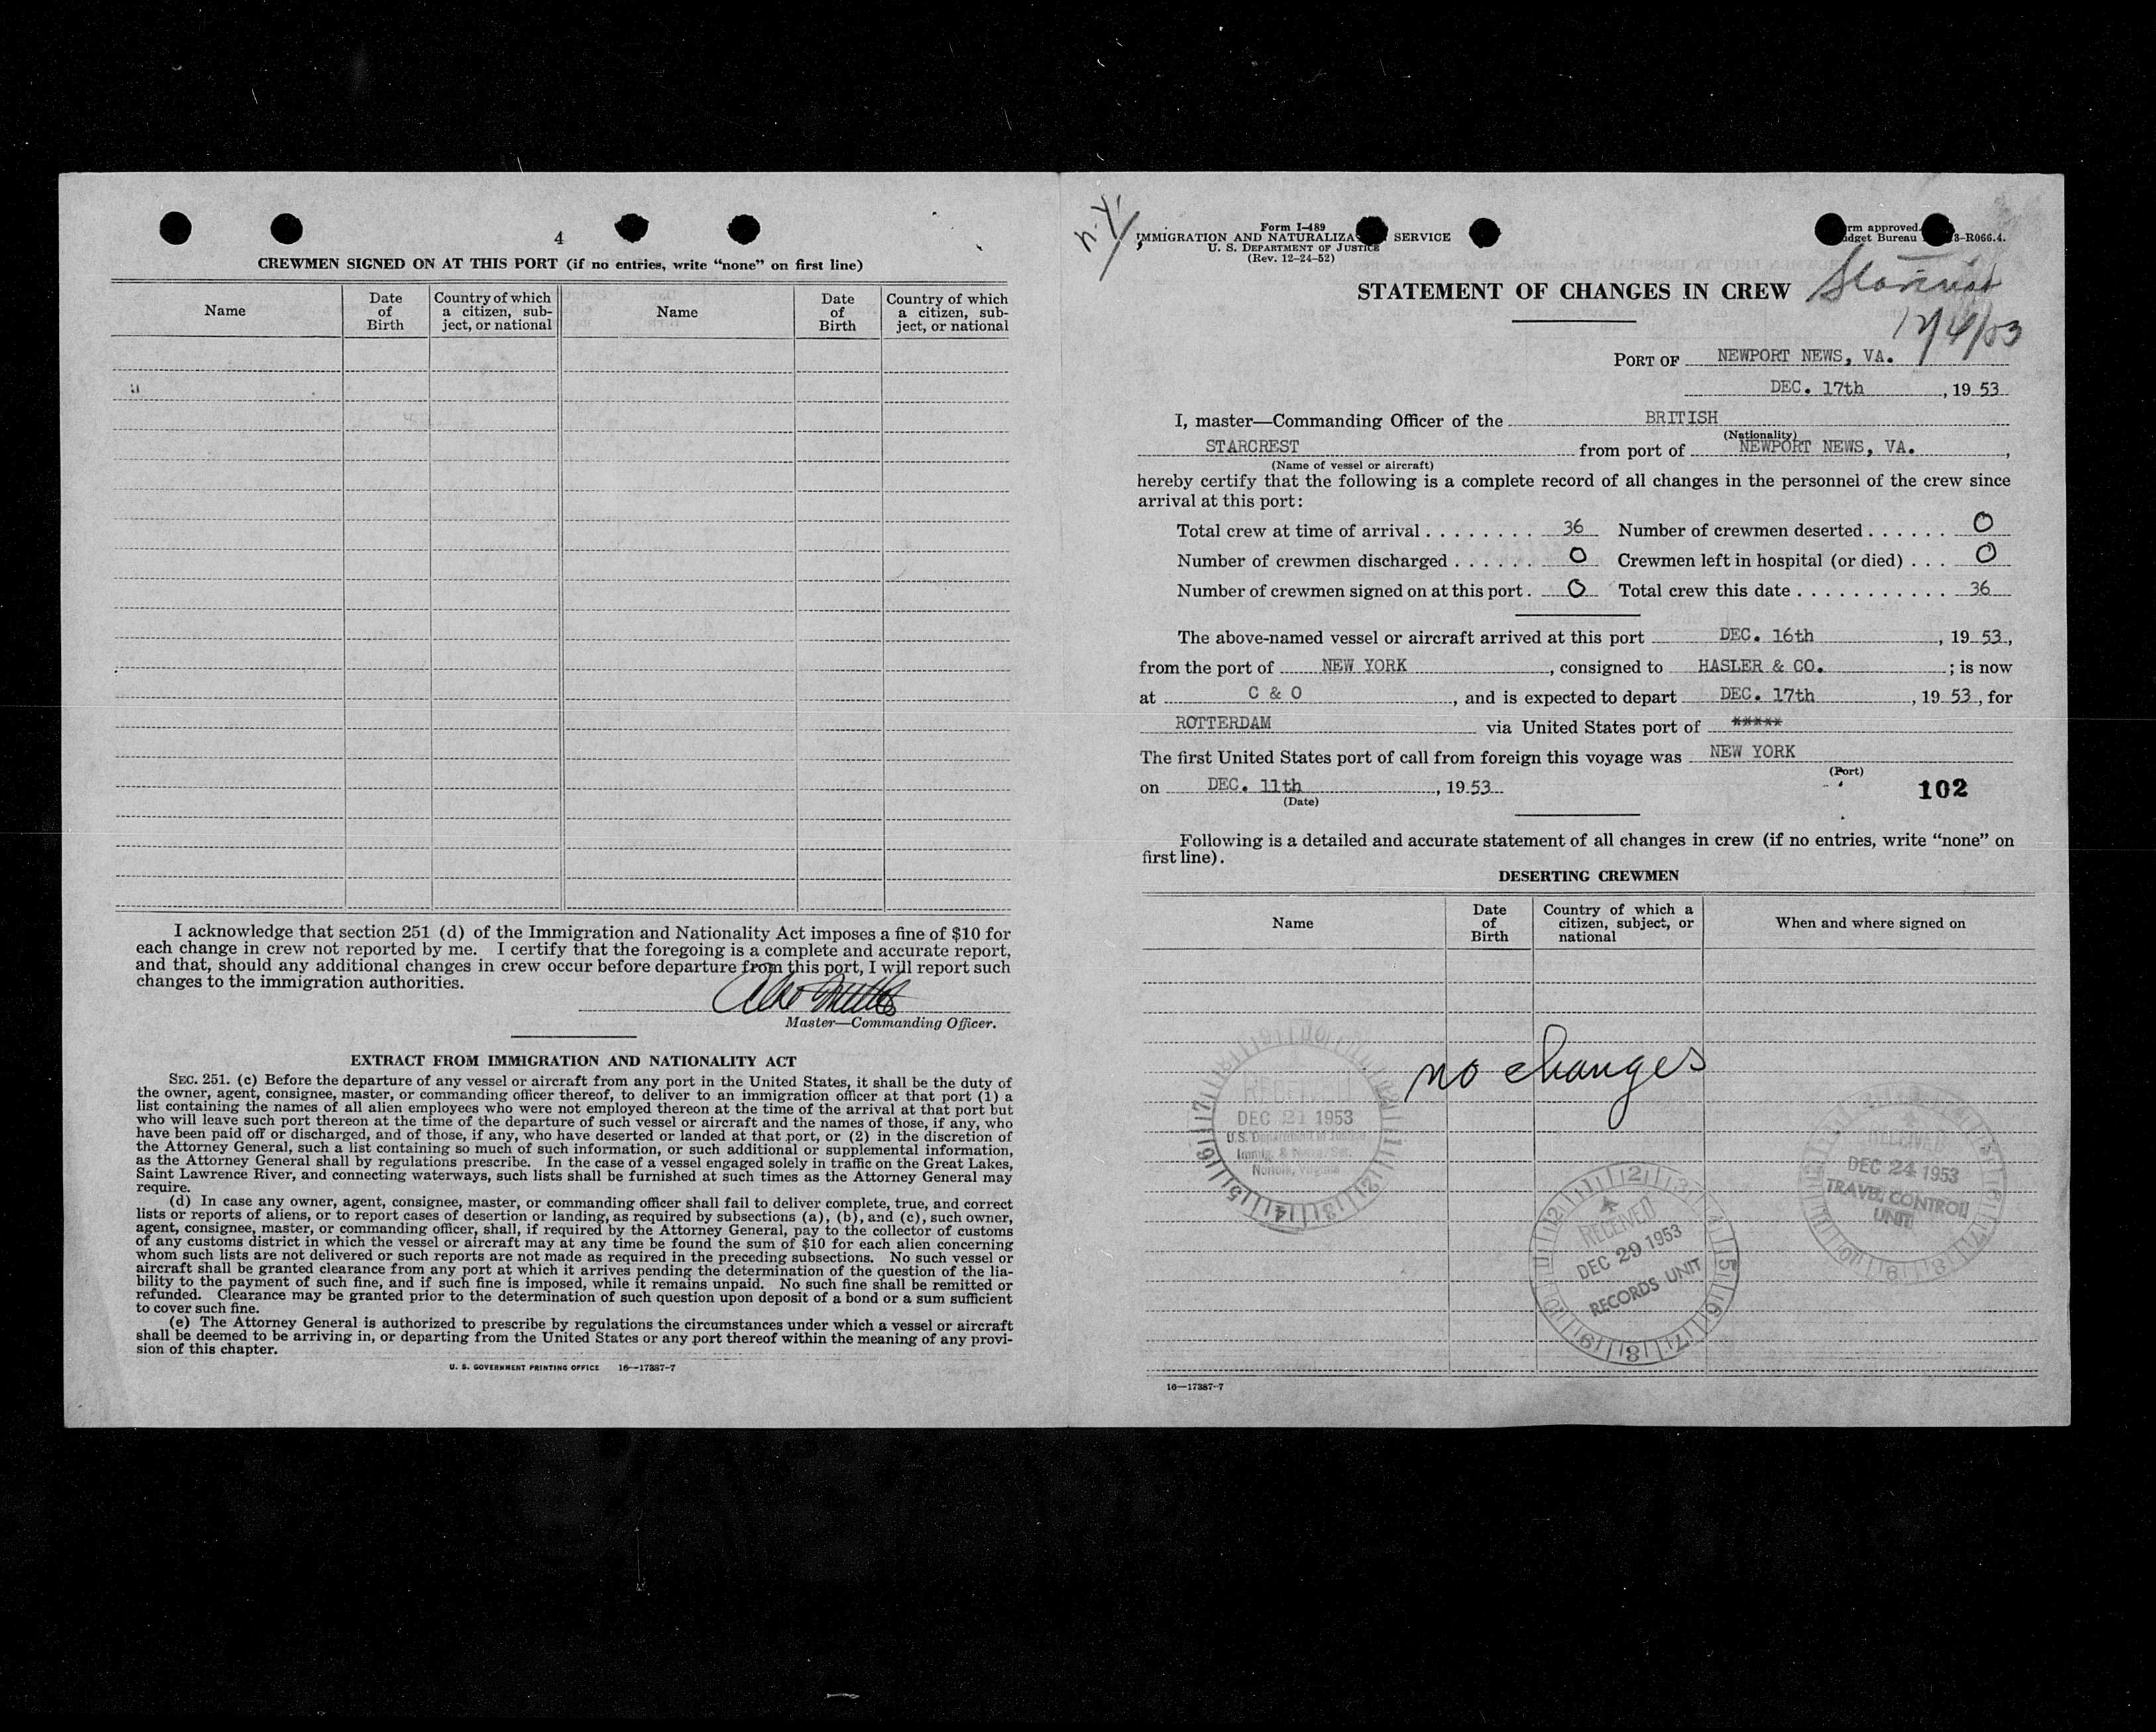 4
CREWMEN SIGNED ON AT THIS PORT (if no entries, write “none” on first line)
Name
Date of Birth
Country of which a citizen, subject, or national
Name
Date of Birth
Country of which a citizen, subject, or national
I acknowledge that section 251 (d) of the Immigration and Nationality Act imposes a fine of $10 for
each change in crew not reported by me. I certify that the foregoing is a complete and accurate report,
and that, should any additional changes in crew occur before departure from this port, I will report such
changes to the immigration authorities.
Master—Commanding Officer.
EXTRACT FROM IMMIGRATION AND NATIONALITY ACT
SEC. 251. (c) Before the departure of any vessel or aircraft from any port in the United States, it shall be the duty of
the owner, agent, consignee, master, or commanding officer thereof, to deliver to an immigration officer at that port (1) a
list containing the names of all alien employees who were not employed thereon at the time of the arrival at that port but
who will leave such port thereon at the time of the departure of such vessel or aircraft and the names of those, if any, who
have been paid off or discharged, and of those, if any, who have deserted or landed at that port, or (2) in the discretion of
the Attorney General, such a list containing so much of such information, or such additional or supplemental information,
as the Attorney General shall by regulations prescribe. In the case of a vessel engaged solely in traffic on the Great Lakes,
Saint Lawrence River, and connecting waterways, such lists shall be furnished at such times as the Attorney General may
require.
(d) In case any owner, agent, consignee, master, or commanding officer shall fail to deliver complete, true, and correct
lists or reports of aliens, or to report cases of desertion or landing, as required by subsections (a), (b), and (c), such owner,
agent, consignee, master, or commanding officer, shall, if required by the Attorney General, pay to the collector of customs
of any customs district in which the vessel or aircraft may at any time be found the sum of $10 for each alien concerning
whom such lists are not delivered or such reports are not made as required in the preceding subsections. No such vessel or
aircraft shall be granted clearance from any port at which it arrives pending the determination of the question of the lia-
bility to the payment of such fine, and if such fine is imposed, while it remains unpaid. No such fine shall be remitted or
refunded. Clearance may be granted prior to the determination of such question upon deposit of a bond or a sum sufficient
to cover such fine.
(e) The Attorney General is authorized to prescribe by regulations the circumstances under which a vessel or aircraft
shall be deemed to be arriving in, or departing from the United States or any port thereof within the meaning of any provi-
sion of this chapter.
U. S. GOVERNMENT PRINTING OFFICE 16—17387-7
n.y.
Form I-489
IMMIGRATION AND NATURALIZA SERVICE
U. S. DEPARTMENT OF JUSTICE
(Rev. 12-24-52)
rm approved.
dget Bureau 3-R066.4.
STATEMENT OF CHANGES IN CREW
PORT OF NEWPORT NEWS, VA.
DEC. 17th, 19 53
I, master—Commanding Officer of the BRITISH
(Nationality)
STARCREST from port of NEWPORT NEWS, VA.,
(Name of vessel or aircraft)
hereby certify that the following is a complete record of all changes in the personnel of the crew since
arrival at this port:
Total crew at time of arrival 36 Number of crewmen deserted 0
Number of crewmen discharged 0 Crewmen left in hospital (or died) 0
Number of crewmen signed on at this port 0 Total crew this date 36
The above-named vessel or aircraft arrived at this port DEC. 16th, 19 53,
from the port of NEW YORK, consigned to HASLER & CO.; is now
at C & O, and is expected to depart DEC. 17th, 19 53, for
ROTTERDAM via United States port of *****
The first United States port of call from foreign this voyage was NEW YORK
(Port)
on DEC. 11th, 19 53
(Date)
102
Following is a detailed and accurate statement of all changes in crew (if no entries, write “none” on
first line).
DESERTING CREWMEN
Name
Date of Birth
Country of which a citizen, subject, or national
When and where signed on
no changes
RECEIVED
DEC 21 1953
U.S. Department of Justice
Immig. & Natz. Ser.
Norfolk, Virginia
RECEIVED
DEC 29 1953
RECORDS UNIT
RECEIVED
DEC 24 1953
TRAVEL CONTROL
UNIT
16—17387-7